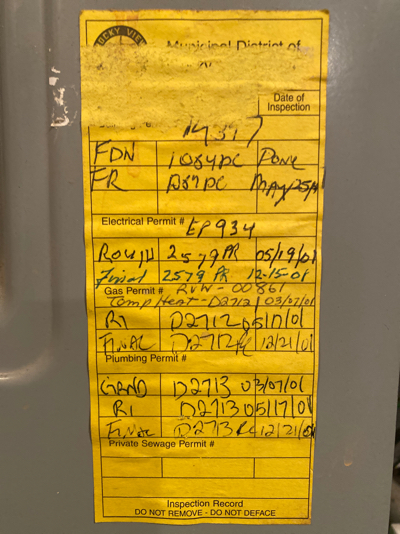 ROCKY VIEW
Municipal District of
Date of
Inspection
FDN 1084DC Done
FR
Electrical Permit # EP934
Rough 2579 PR 05/19/01
Final 2579 PR 12-15-01
Gas Permit # RVW-00861
Temp Heat-D2712 03/07/01
RI D2712 05/17/01
FINAL D2712 12/21/01
Plumbing Permit #
GRND D2713 03/07/01
RI D2713 05/17/01
FINAL D2713 12/21/01
Private Sewage Permit #
Inspection Record
DO NOT REMOVE - DO NOT DEFACE